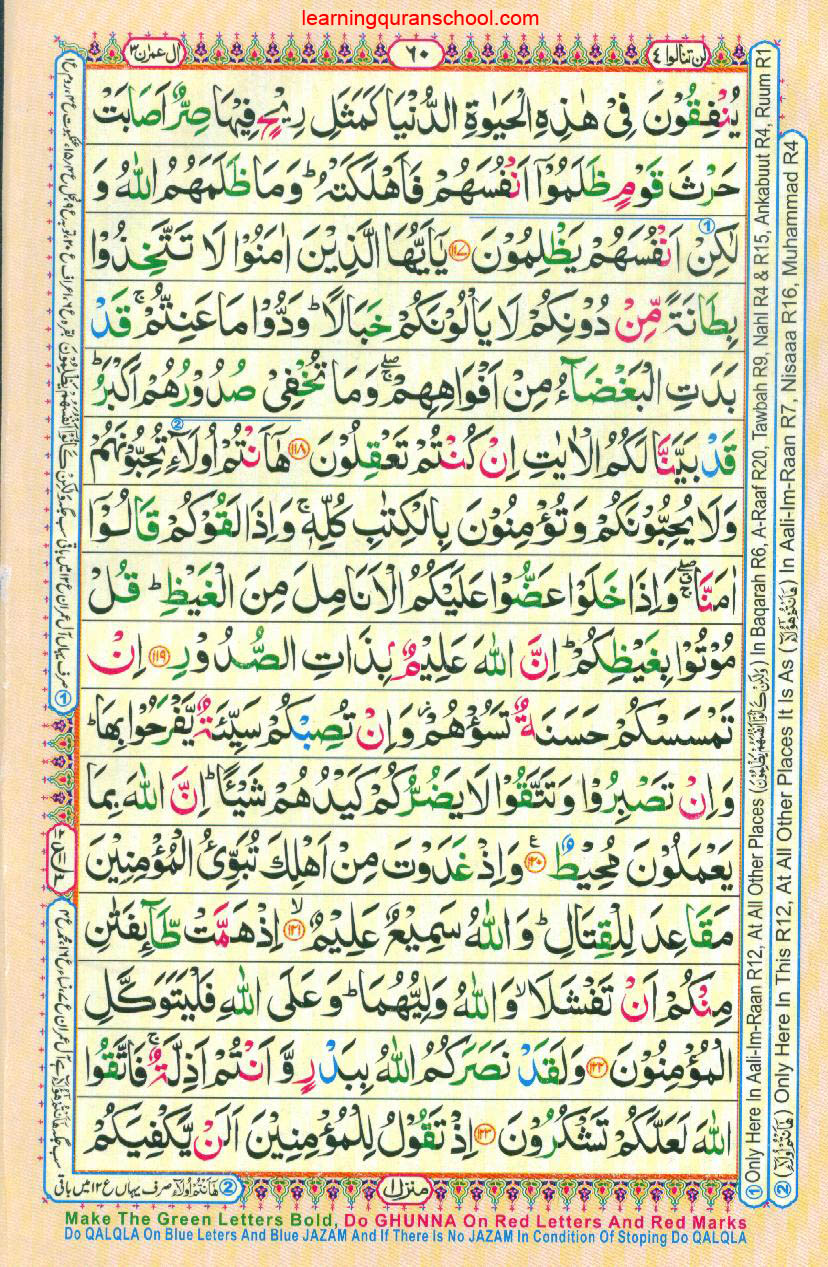 learningquranschool.com
لن تنالوا ٤
٦٠
ال عمرٰن ٣
يُنْفِقُوْنَ فِىْ هٰذِهِ الْحَيٰوةِ الدُّنْيَا كَمَثَلِ رِيْحٍ فِيْهَا صِرٌّ اَصَابَتْ
حَرْثَ قَوْمٍ ظَلَمُوْۤا اَنْفُسَهُمْ فَاَهْلَكَتْهُ ؕ وَمَا ظَلَمَهُمُ اللّٰهُ وَ
لٰكِنْ اَنْفُسَهُمْ يَظْلِمُوْنَ ﴿۱۱۷﴾ يٰۤاَيُّهَا الَّذِيْنَ اٰمَنُوْا لَا تَتَّخِذُوْا
بِطَانَةً مِّنْ دُوْنِكُمْ لَا يَاْلُوْنَكُمْ خَبَالًا ؕ وَدُّوْا مَا عَنِتُّمْ ۚ قَدْ
بَدَتِ الْبَغْضَآءُ مِنْ اَفْوَاهِهِمْ ۖۚ وَمَا تُخْفِىْ صُدُوْرُهُمْ اَكْبَرُ ؕ
قَدْ بَيَّنَّا لَكُمُ الْاٰيٰتِ اِنْ كُنْتُمْ تَعْقِلُوْنَ ﴿۱۱۸﴾ هٰۤاَنْتُمْ اُولَآءِ تُحِبُّوْنَهُمْ
وَلَا يُحِبُّوْنَكُمْ وَتُؤْمِنُوْنَ بِالْكِتٰبِ كُلِّهٖ ۚ وَاِذَا لَقُوْكُمْ قَالُوْۤا
اٰمَنَّا ۖۚ وَاِذَا خَلَوْا عَضُّوْا عَلَيْكُمُ الْاَنَامِلَ مِنَ الْغَيْظِ ؕ قُلْ
مُوْتُوْا بِغَيْظِكُمْ ؕ اِنَّ اللّٰهَ عَلِيْمٌۢ بِذَاتِ الصُّدُوْرِ ﴿۱۱۹﴾ اِنْ
تَمْسَسْكُمْ حَسَنَةٌ تَسُؤْهُمْ ؗ وَاِنْ تُصِبْكُمْ سَيِّئَةٌ يَّفْرَحُوْا بِهَا ؕ
وَاِنْ تَصْبِرُوْا وَتَتَّقُوْا لَا يَضُرُّكُمْ كَيْدُهُمْ شَيْـًٔا ؕ اِنَّ اللّٰهَ بِمَا
يَعْمَلُوْنَ مُحِيْطٌ ﴿۱۲۰﴾ وَاِذْ غَدَوْتَ مِنْ اَهْلِكَ تُبَوِّئُ الْمُؤْمِنِيْنَ
مَقَاعِدَ لِلْقِتَالِ ؕ وَاللّٰهُ سَمِيْعٌ عَلِيْمٌ ﴿۱۲۱﴾ اِذْ هَمَّتْ طَّآئِفَتٰنِ
مِنْكُمْ اَنْ تَفْشَلَا ۙ وَاللّٰهُ وَلِيُّهُمَا ؕ وَعَلَى اللّٰهِ فَلْيَتَوَكَّلِ
الْمُؤْمِنُوْنَ ﴿۱۲۲﴾ وَلَقَدْ نَصَرَكُمُ اللّٰهُ بِبَدْرٍ وَّاَنْتُمْ اَذِلَّةٌ ۚ فَاتَّقُوا
اللّٰهَ لَعَلَّكُمْ تَشْكُرُوْنَ ﴿۱۲۳﴾ اِذْ تَقُوْلُ لِلْمُؤْمِنِيْنَ اَلَنْ يَّكْفِيَكُمْ
① Only Here In Aali-Im-Raan R12, At All Other Places (وَلٰكِنْ كَانُوْۤا اَنْفُسَهُمْ يَظْلِمُوْنَ) In Baqarah R6, A-Raaf R20, Tawbah R9, Nahl R4 & R15, Ankabuut R4, Ruum R1
② (هٰۤاَنْتُمْ اُولَآءِ) Only Here In This R12, At All Other Places It Is As (هٰۤاَنْتُمْ هٰۤؤُلَآءِ) In Aali-Im-Raan R7, Nisaaa R16, Muhammad R4
منزل ١
② هٰۤاَنْتُمْ اُولَآءِ صرف یہاں ع ١٢ میں باقی
Make The Green Letters Bold, Do GHUNNA On Red Letters And Red Marks
Do QALQLA On Blue Leters And Blue JAZAM And If There Is No JAZAM In Condition Of Stoping Do QALQLA